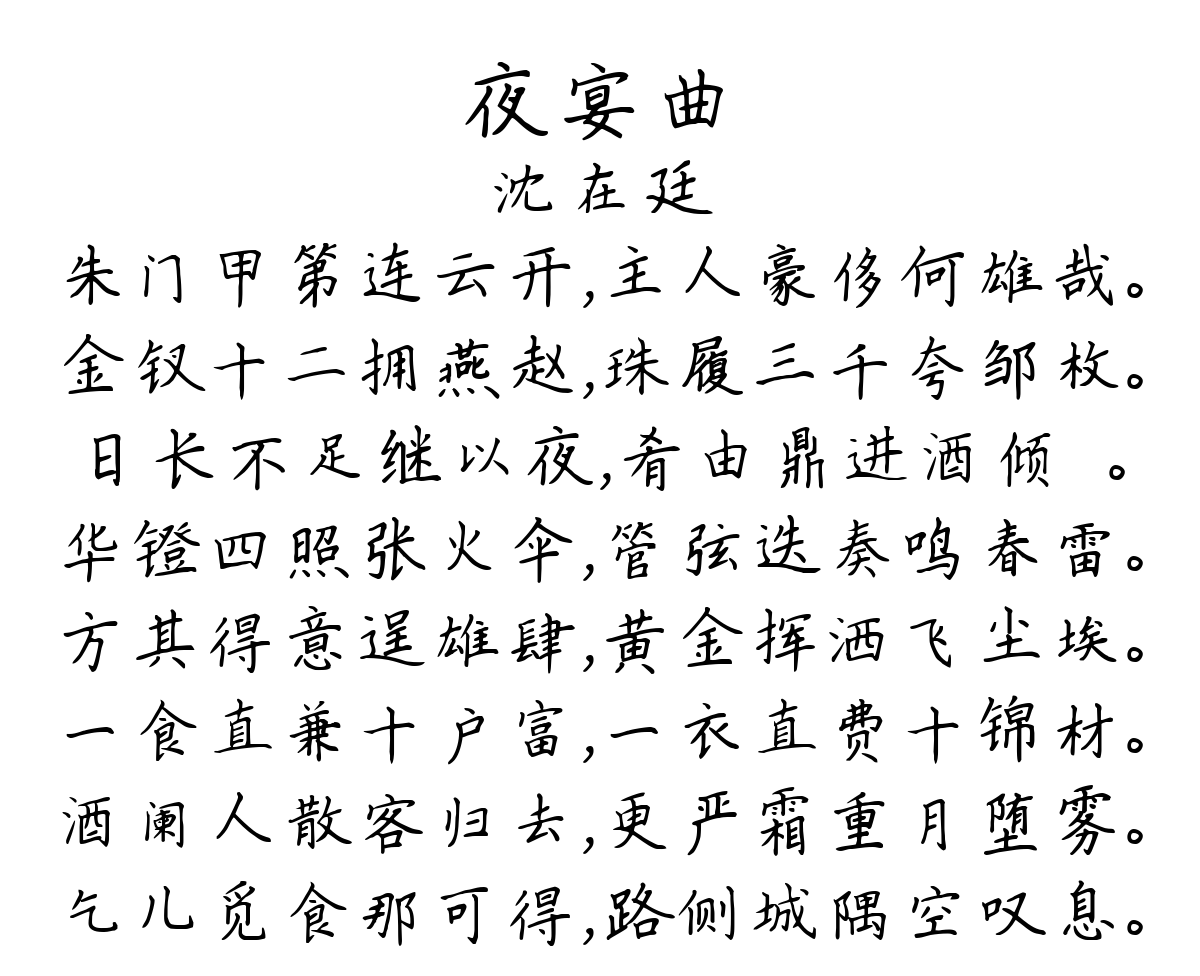 夜宴曲
沈在廷
朱门甲第连云开,主人豪侈何雄哉。
金钗十二拥燕赵,珠履三千夸邹枚。
日长不足继以夜,肴由鼎进酒倾 。
华镫四照张火伞,管弦迭奏鸣春雷。
方其得意逞雄肆,黄金挥洒飞尘埃。
一食直兼十户富,一衣直费十锦材。
酒阑人散客归去,更严霜重月堕雾。
乞儿觅食那可得,路侧城隅空叹息。